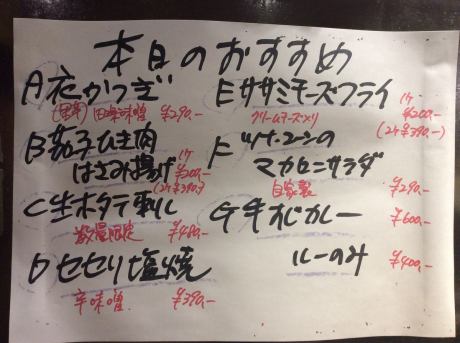 本日のおすすめ
A 衣かつぎ
(里芋) 田楽味噌 ¥290.-
B 茄子ひき肉
はさみ揚げ
1ケ ¥200.-
(2ケ ¥390.-)
C 生ホタテ刺し
数量限定 ¥480.-
D セセリ塩焼
辛味噌 ¥390.-
E ササミチーズフライ
クリームチーズ入り
1ケ ¥200.-
(2ケ ¥390.-)
F ツナ・コーンの
マカロニサラダ
自家製 ¥290.-
G 牛すじカレー ¥600.-
ルーのみ ¥400.-